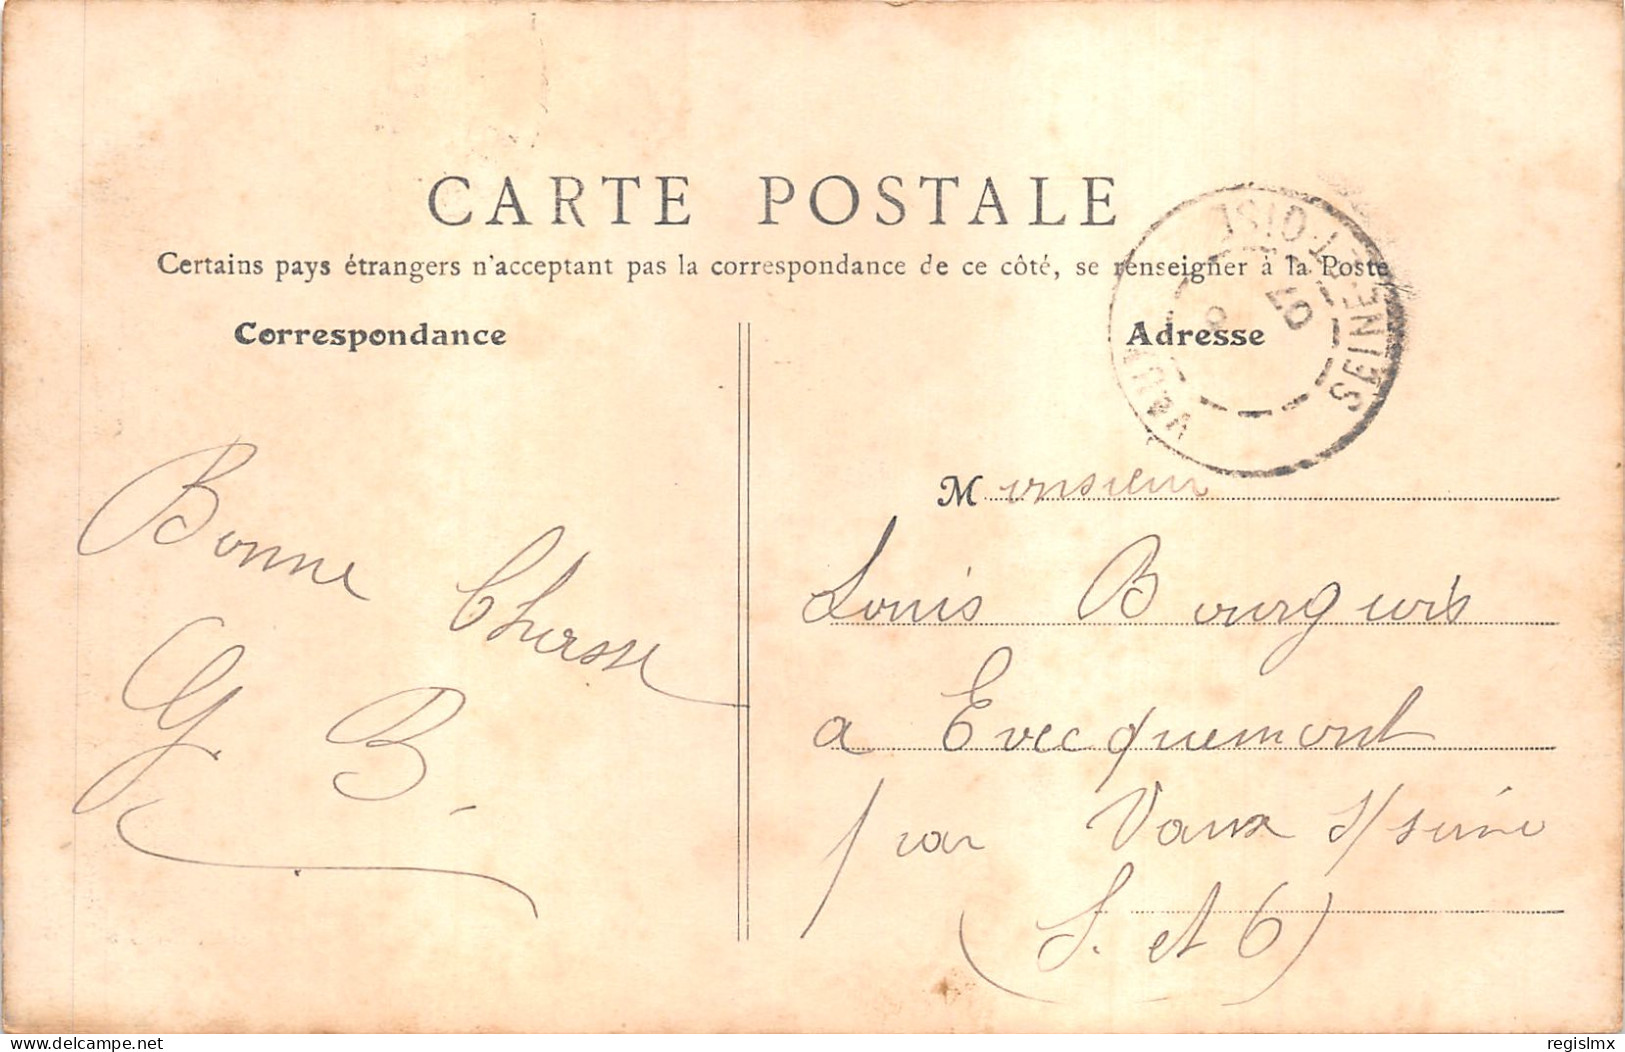 CARTE POSTALE
Certains pays étrangers n'acceptant pas la correspondance de ce côté, se renseigner à la Poste
Correspondance
Adresse
VAUX
SEINE-ET-OISE
07
Bonne Chasse
G. B.
Monsieur
Louis Bourgeois
a Evecquemont
par Vaux s/seine
(S. et O)
www.delcampe.net
regislmx